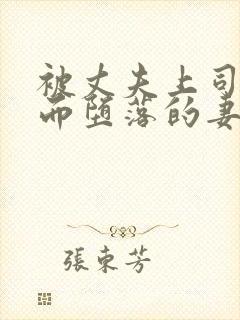 被丈夫上司
而堕落的妻
張東芳